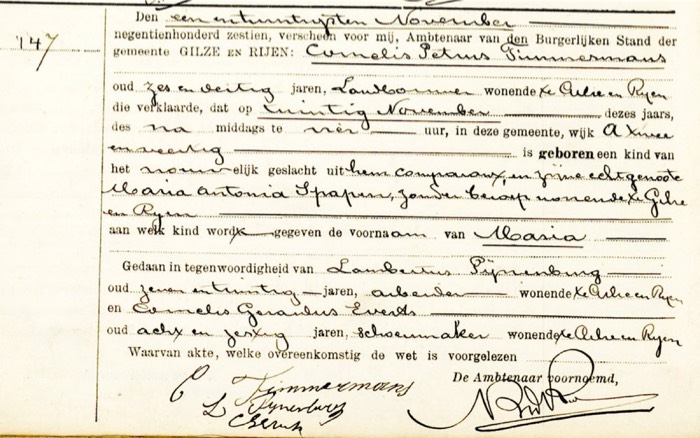 147
Den een en twintigsten November
negentienhonderd zestien, verscheen voor mij, Ambtenaar van den Burgerlijken Stand der
gemeente GILZE EN RIJEN: Cornelis Petrus Timmermans
oud zes en dertig jaren, Landbouwer wonende te Gilze en Rijen
die verklaarde, dat op twintig November dezes jaars,
des na middags te vier uur, in deze gemeente, wijk A twee
en veertig is geboren een kind van
het vrouwelijk geslacht uit hem comparant, en zijne echtgenoote
Maria Antonia Spapen, zonder beroep wonende te Gilze
en Rijen
aan welk kind wordt gegeven de voornaam van Maria
Gedaan in tegenwoordigheid van Lambertus Pijnenburg
oud zeven en twintig jaren, arbeider wonende te Gilze en Rijen
en Cornelis Gerardus Everts
oud acht en zestig jaren, schoenmaker wonende te Gilze en Rijen
Waarvan akte, welke overeenkomstig de wet is voorgelezen
De Ambtenaar voornoemd,
C Timmermans
L Pijnenburg